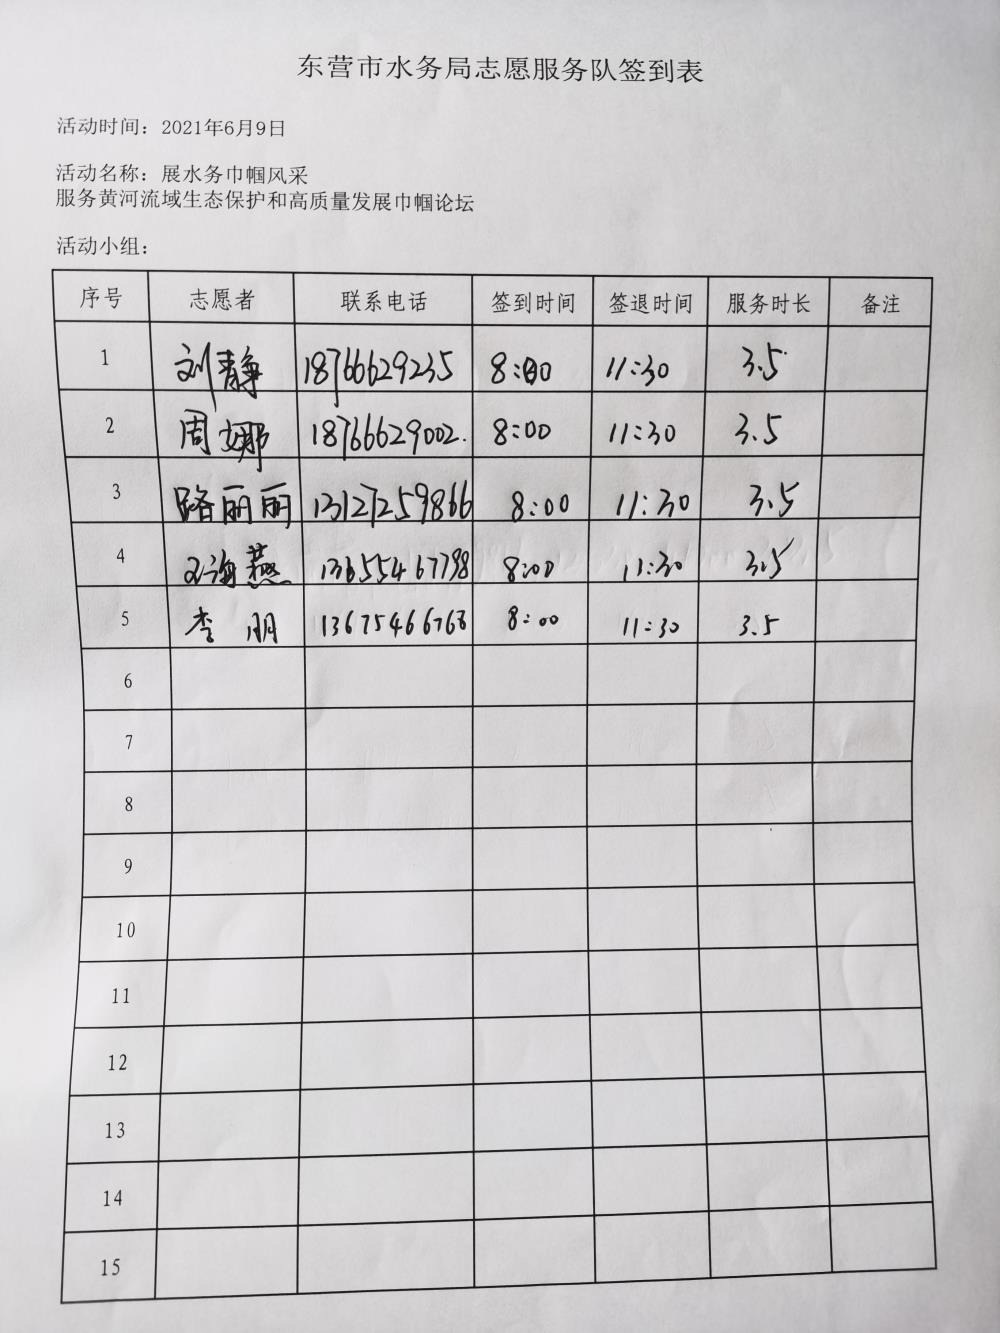 东营市水务局志愿服务队签到表
活动时间：2021年6月9日
活动名称：展水务巾帼风采
服务黄河流域生态保护和高质量发展巾帼论坛
活动小组：
序号 志愿者 联系电话 签到时间 签退时间 服务时长 备注
1 刘静 18766629235 8:00 11:30 3.5
2 周娜 18766629002. 8:00 11:30 3.5
3 路丽丽 13127259866 8:00 11:30 3.5
4 王海燕 13655467798 8:00 11:30 3.5
5 李朋 13675466768 8:00 11:30 3.5
6
7
8
9
10
11
12
13
14
15